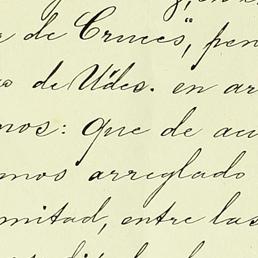 de Cruces", pen
de Udes. en ar
mos: Que de acu
mos arreglado
mitad, entre las